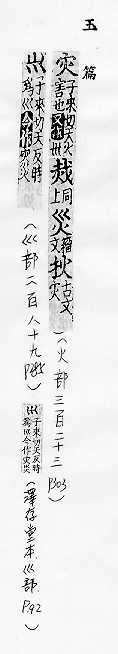 玉篇
灾子來切天火害也又作𡿧
烖同上
災籀文
𢦏古文灾
(火部三百二十三 P303)
𡿧子來切天反時爲𡿧今作灾災
(巛部二百八十九 P285)
𡿧子來切天反時爲𡿧今作灾災
(澤存堂本.巛部.P.92)